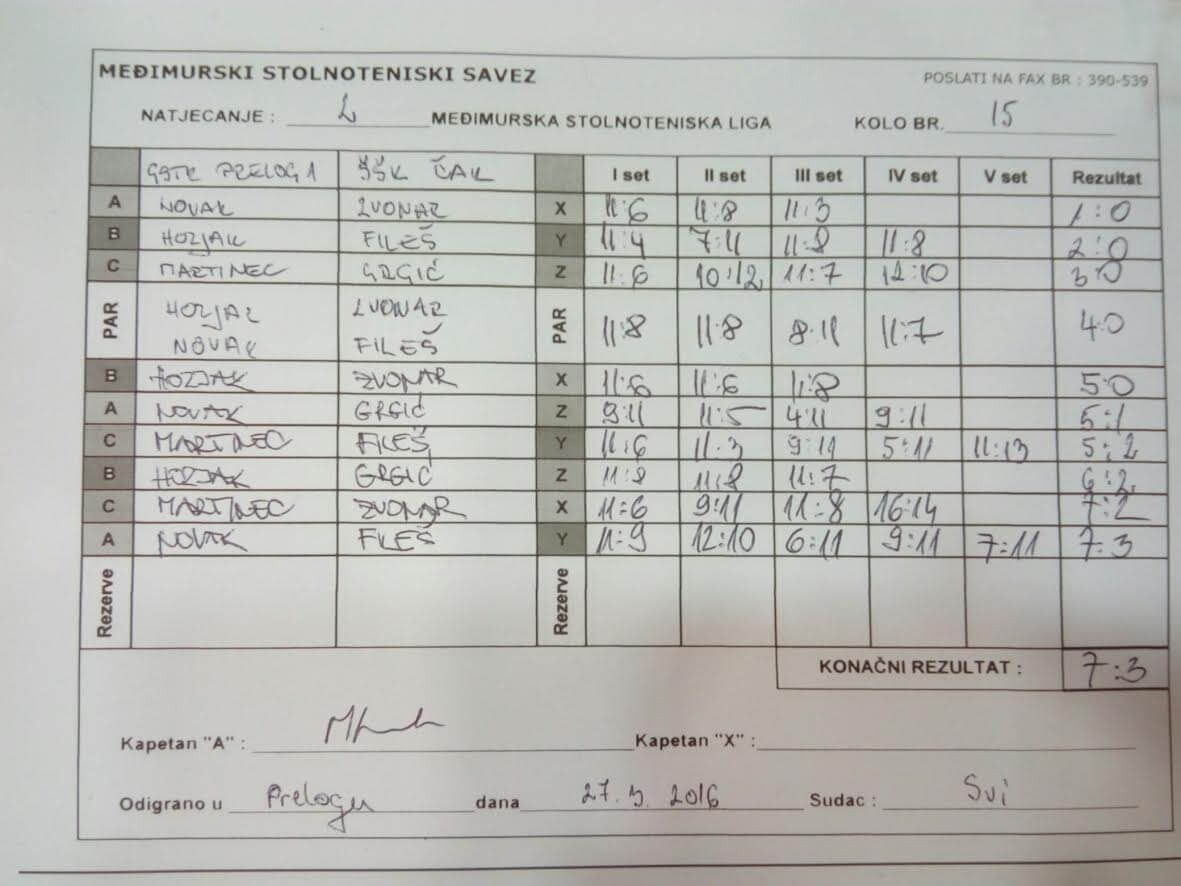 MEĐIMURSKI STOLNOTENISKI SAVEZ POSLATI NA FAX BR : 390-539
NATJECANJE : 2 MEĐIMURSKA STOLNOTENISKA LIGA KOLO BR. 15
GSTK PRELOG 1 ŠŠK ČAK I set II set III set IV set V set Rezultat
A NOVAK ZVONAR X 11:6 11:8 11:3 1:0
B HOZJAK FILEŠ Y 11:4 7:11 11:8 11:8 2:0
C MARTINEC GRGIĆ Z 11:6 10:12 11:7 12:10 3:0
PAR HOZJAK ZVONAR PAR 11:8 11:8 8:11 11:7 4:0
NOVAK FILEŠ
B HOZJAK ZVONAR X 11:6 11:6 11:8 5:0
A NOVAK GRGIĆ Z 9:11 11:5 4:11 9:11 5:1
C MARTINEC FILEŠ Y 11:6 11:3 9:11 5:11 11:13 5:2
B HOZJAK GRGIĆ Z 11:8 11:8 11:7 6:2
C MARTINEC ZVONAR X 11:6 9:11 11:8 16:14 7:2
A NOVAK FILEŠ Y 11:9 12:10 6:11 9:11 7:11 7:3
Rezerve Rezerve
KONAČNI REZULTAT : 7:3
Kapetan "A" : Kapetan "X" :
Odigrano u Prelogu dana 27. 3. 2016 Sudac : Svi